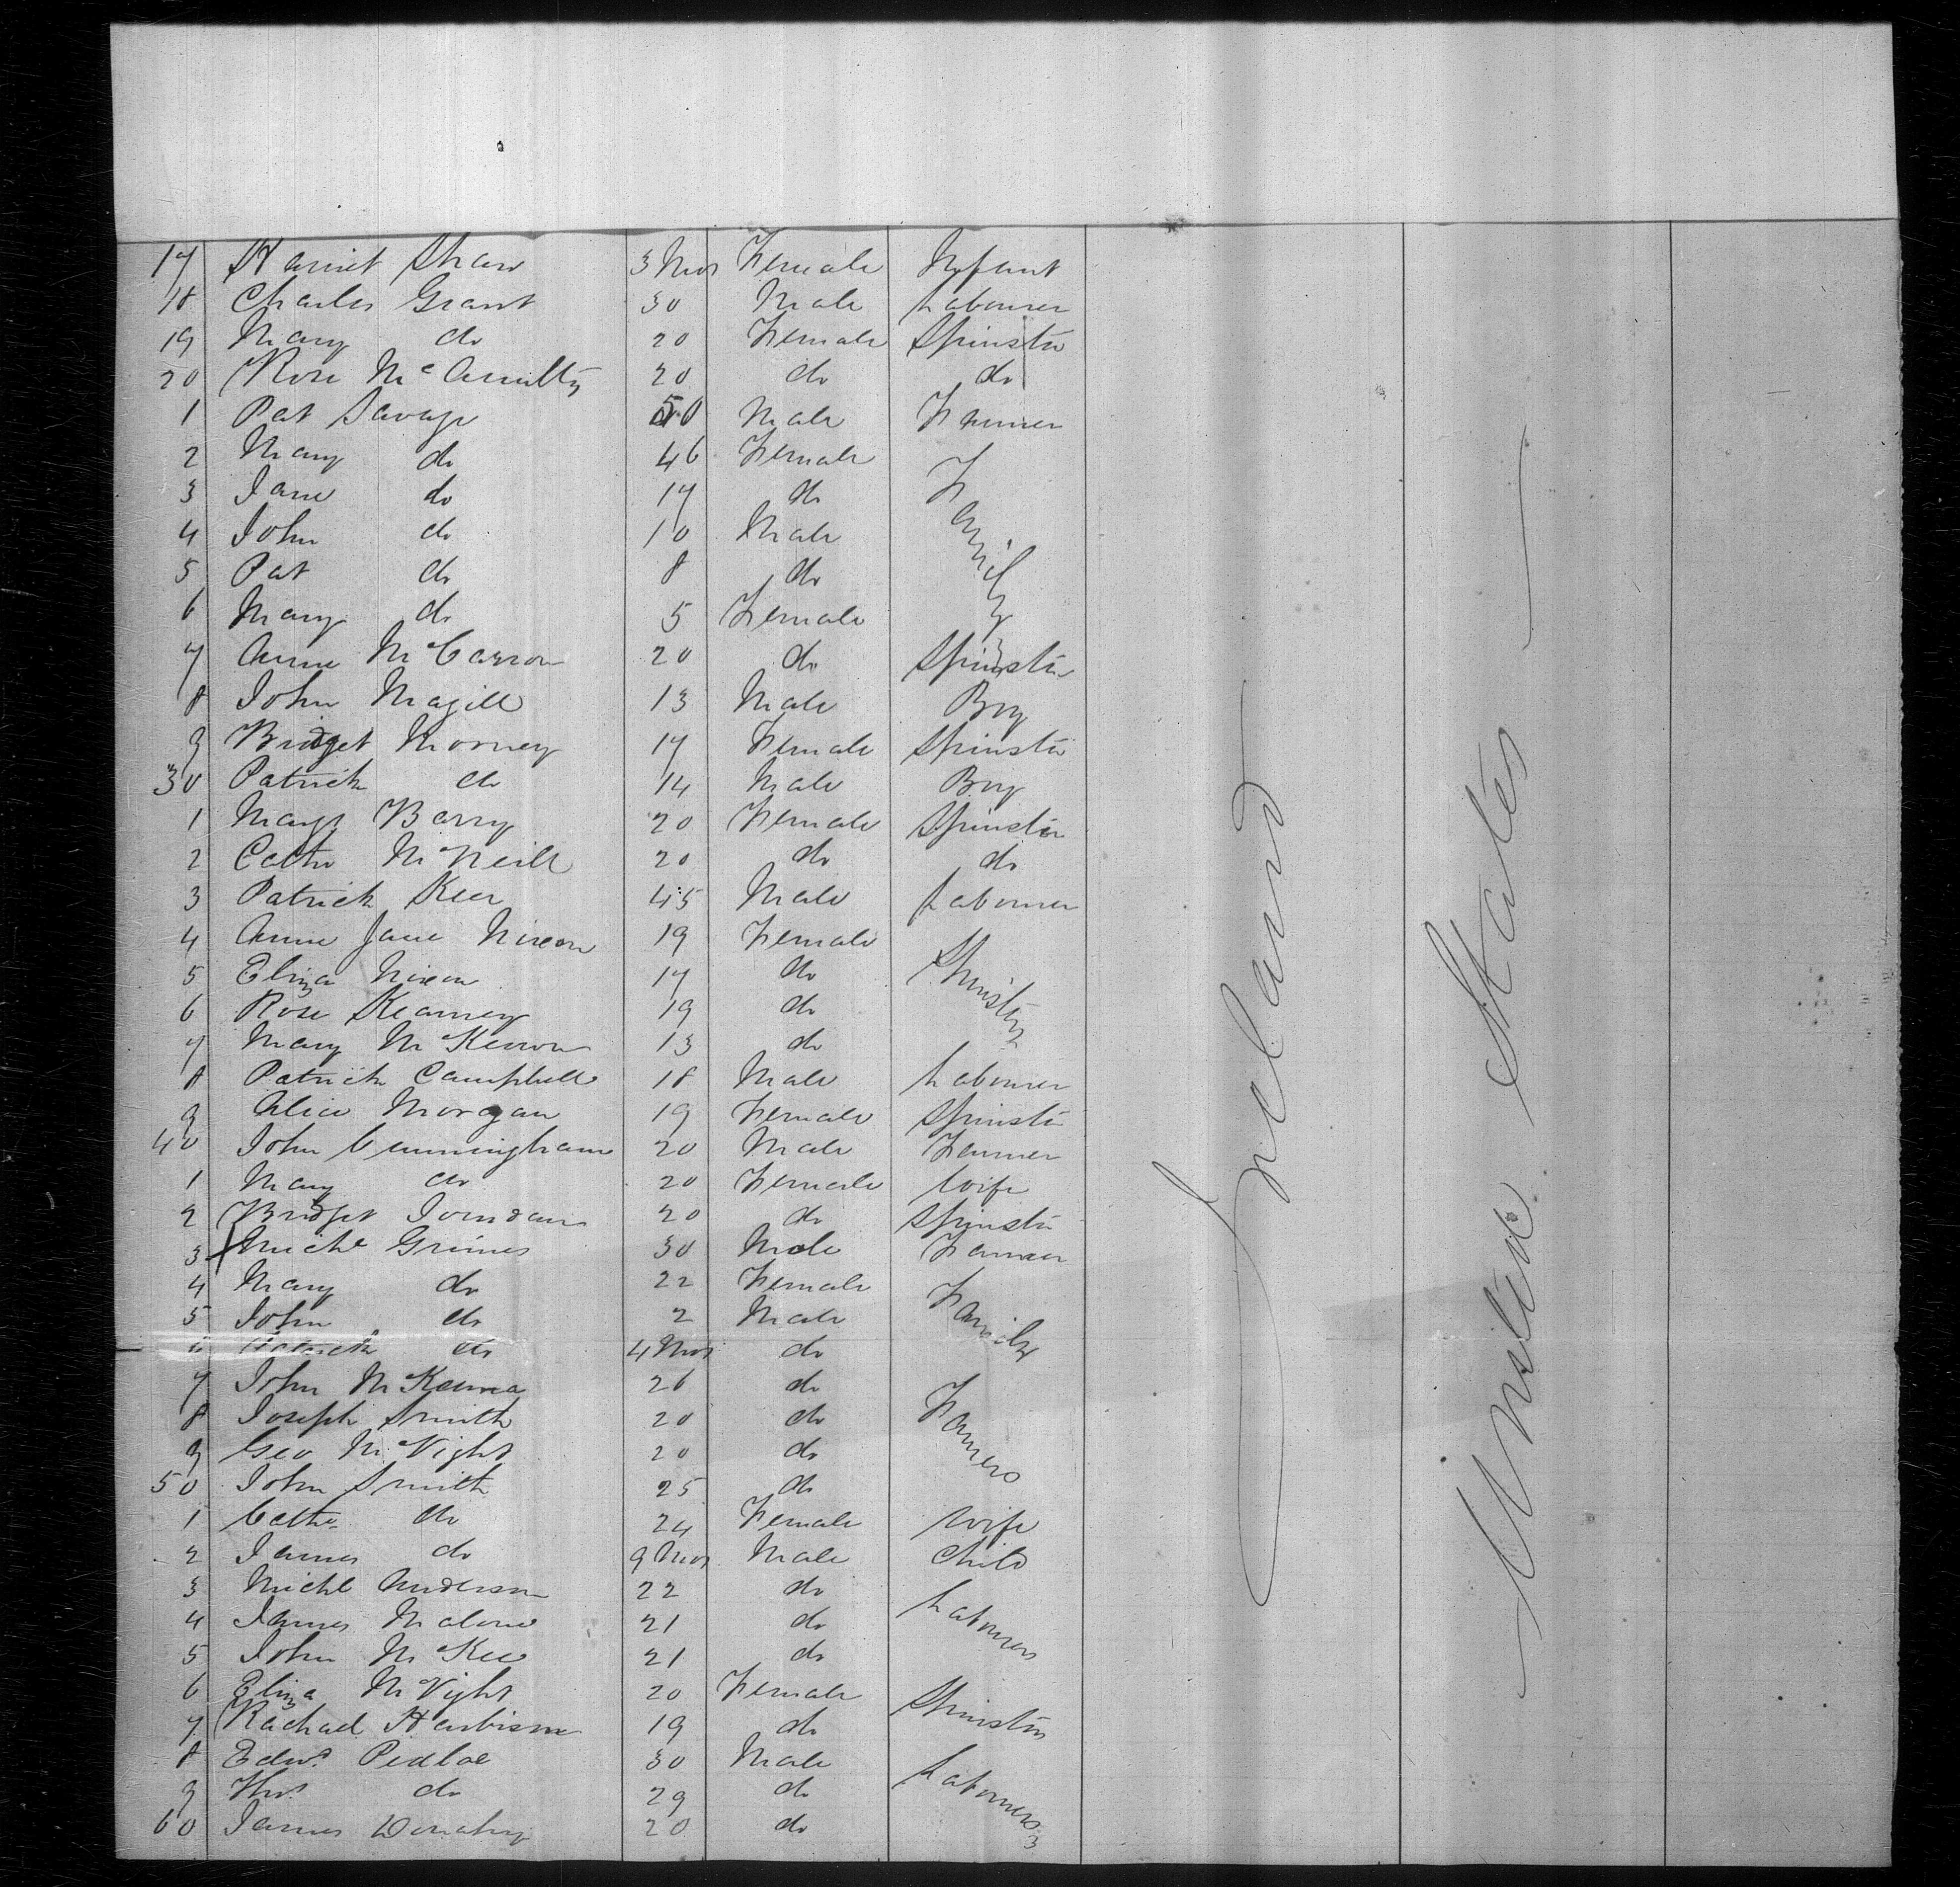 17 Harriet Shaw 3 Mos Female Infant
18 Charles Grant 30 Male Labourer
19 Mary do 20 Female Spinster
20 Rose McAnulty 20 do do
1 Pat Savage 50 Male Farmer
2 Mary do 46 Female
3 Jane do 17 do
4 John do 10 Male
5 Pat do 8 do
6 Mary do 5 Female
Family
7 Anne McCarron 20 do Spinster
8 John Magill 13 Male Boy
9 Bridget Morney 17 Female Spinster
30 Patrick do 14 Male Boy
1 Mary Barry 20 Female Spinster
2 Cathe McNeill 20 do do
3 Patrick Keer 45 Male Labourer
4 Anne Jane Nixon 19 Female
5 Eliza Nixon 17 do
6 Rose Kearney 19 do
7 Mary McKeown 13 do
Spinsters
8 Patrick Campbell 18 Male Labourer
9 Alice Morgan 19 Female Spinster
40 John Cunningham 20 Male Farmer
1 Mary do 20 Female Wife
2 Bridget Jourdan 20 do Spinster
3 Michl Grimes 30 Male Farmer
4 Mary do 22 Female
5 John do 2 Male
6 Patrick do 4 Mos do
Family
7 John McKenna 26 do
8 Joseph Smith 20 do
9 Geo McVight 20 do
50 John Smith 25 do
Farmers
1 Cathe do 24 Female Wife
2 James do 9 Mos Male Child
3 Michl Anderson 22 do
4 James Malone 21 do
5 John McKee 21 do
Labourers
6 Eliza McVight 20 Female
7 Rachael Harbison 19 do
Spinsters
8 Edwd 30 Male
9 Thos do 29 do
60 James Donahy 20 do
Labourers
Ireland
United States